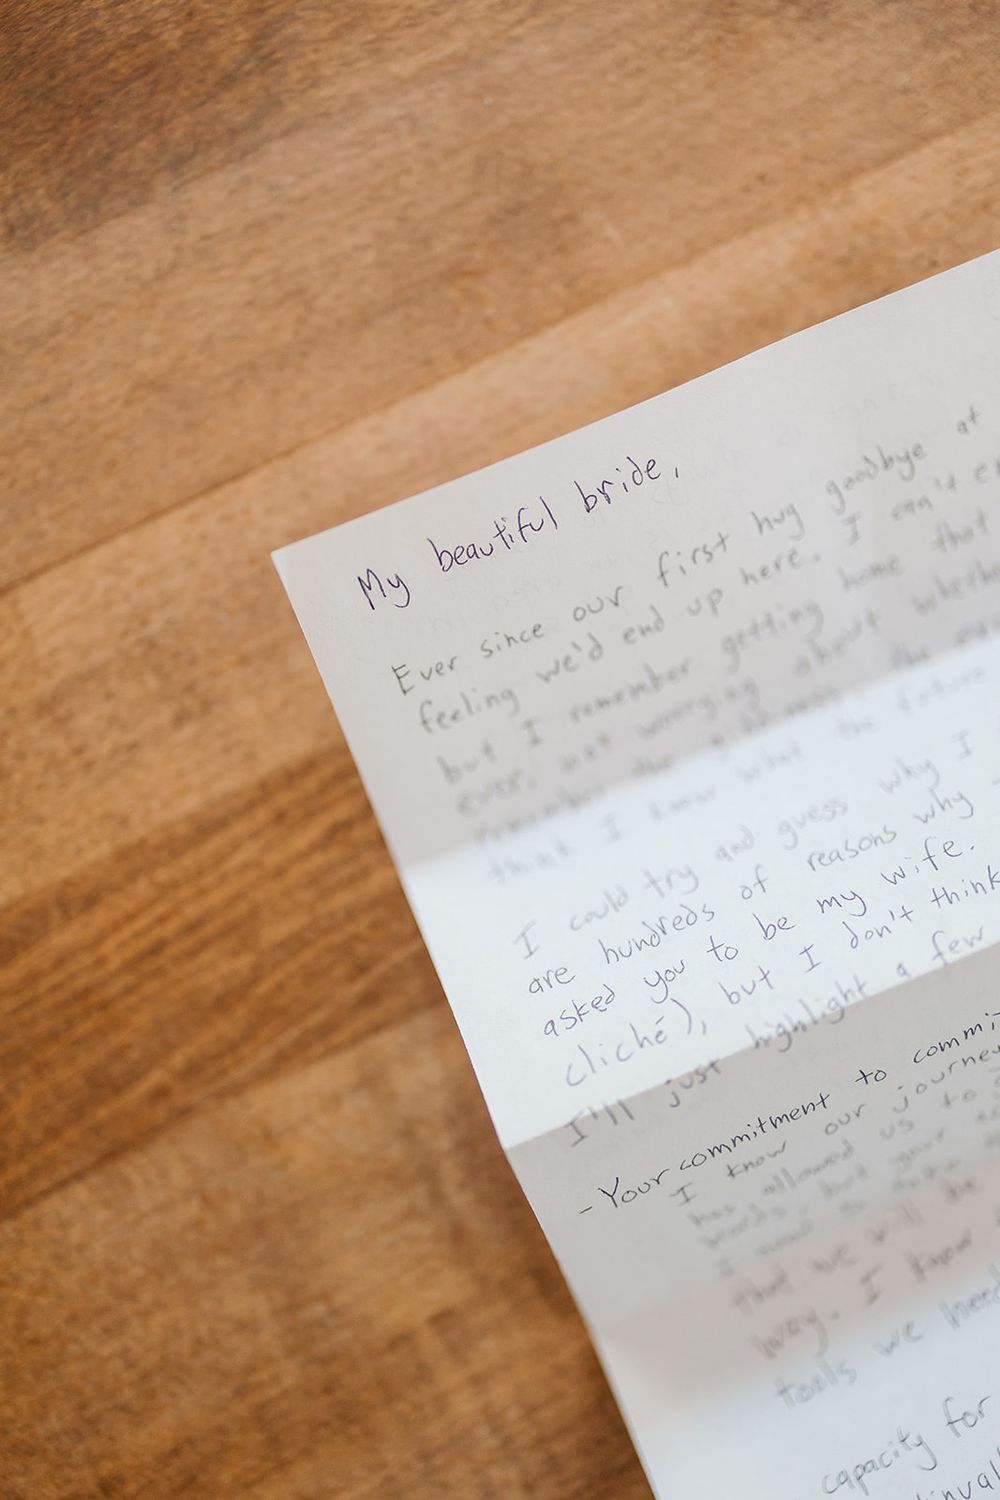 My beautiful bride,
Ever since our first hug goodbye at
feeling we'd end up here. I can't
but I remember getting home that
ever, not worrying about
remember the
think I know what the future
I could try and guess why I
are hundreds of reasons why
asked you to be my wife.
cliché), but I don't think
I'll just highlight a few
- Your commitment to
I know our journey
has allowed us to
words, but your
I
that we will be
way. I know
tools we need
capacity for